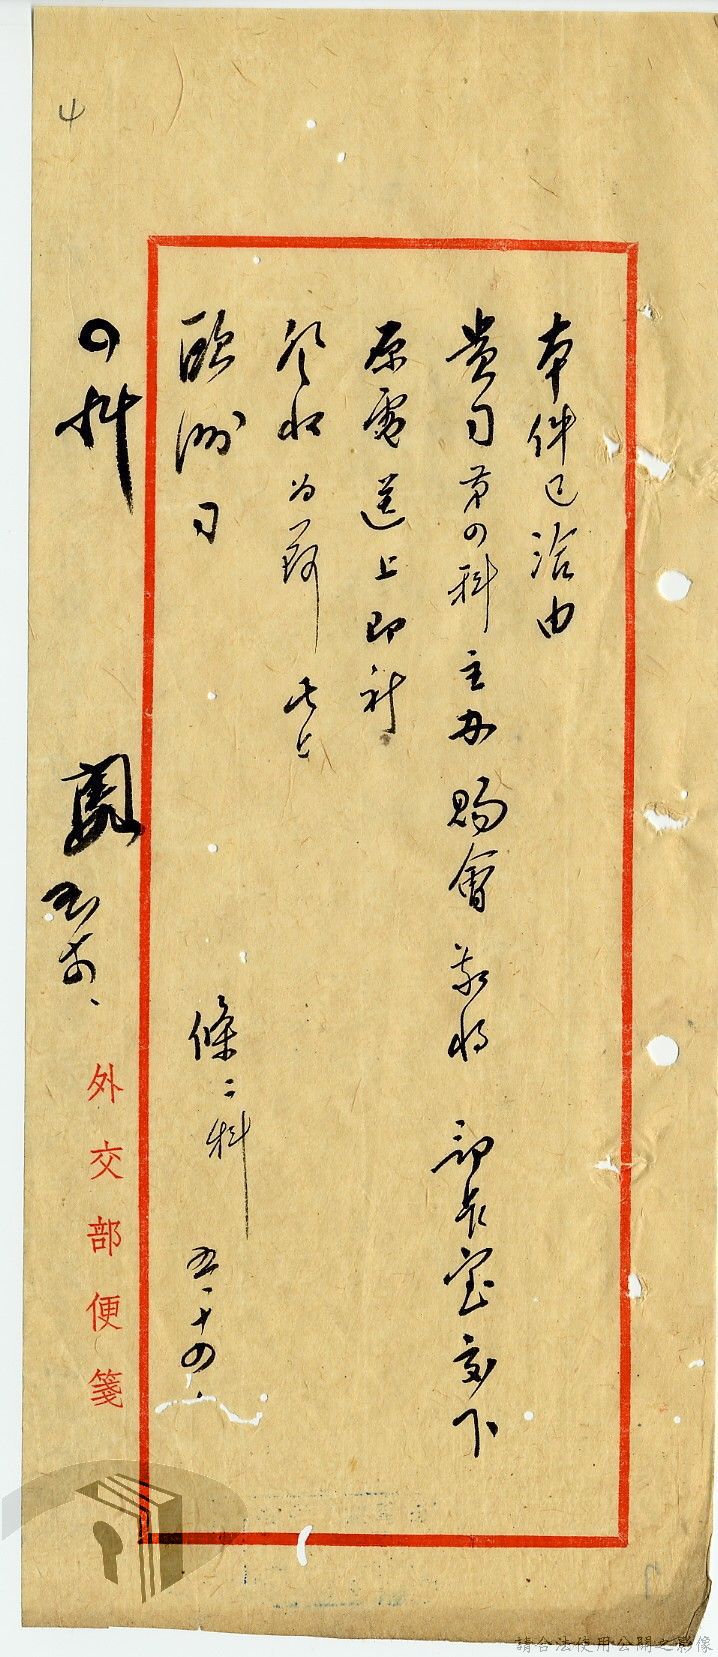 本件已洽由
貴司第四科主办賜會茲將 部長室交下
原電送上即祈
簽收为荷 此上
歐洲司
條二科 五、十四、
四科
五、
外交部便箋
4
請合法使用公開之影像